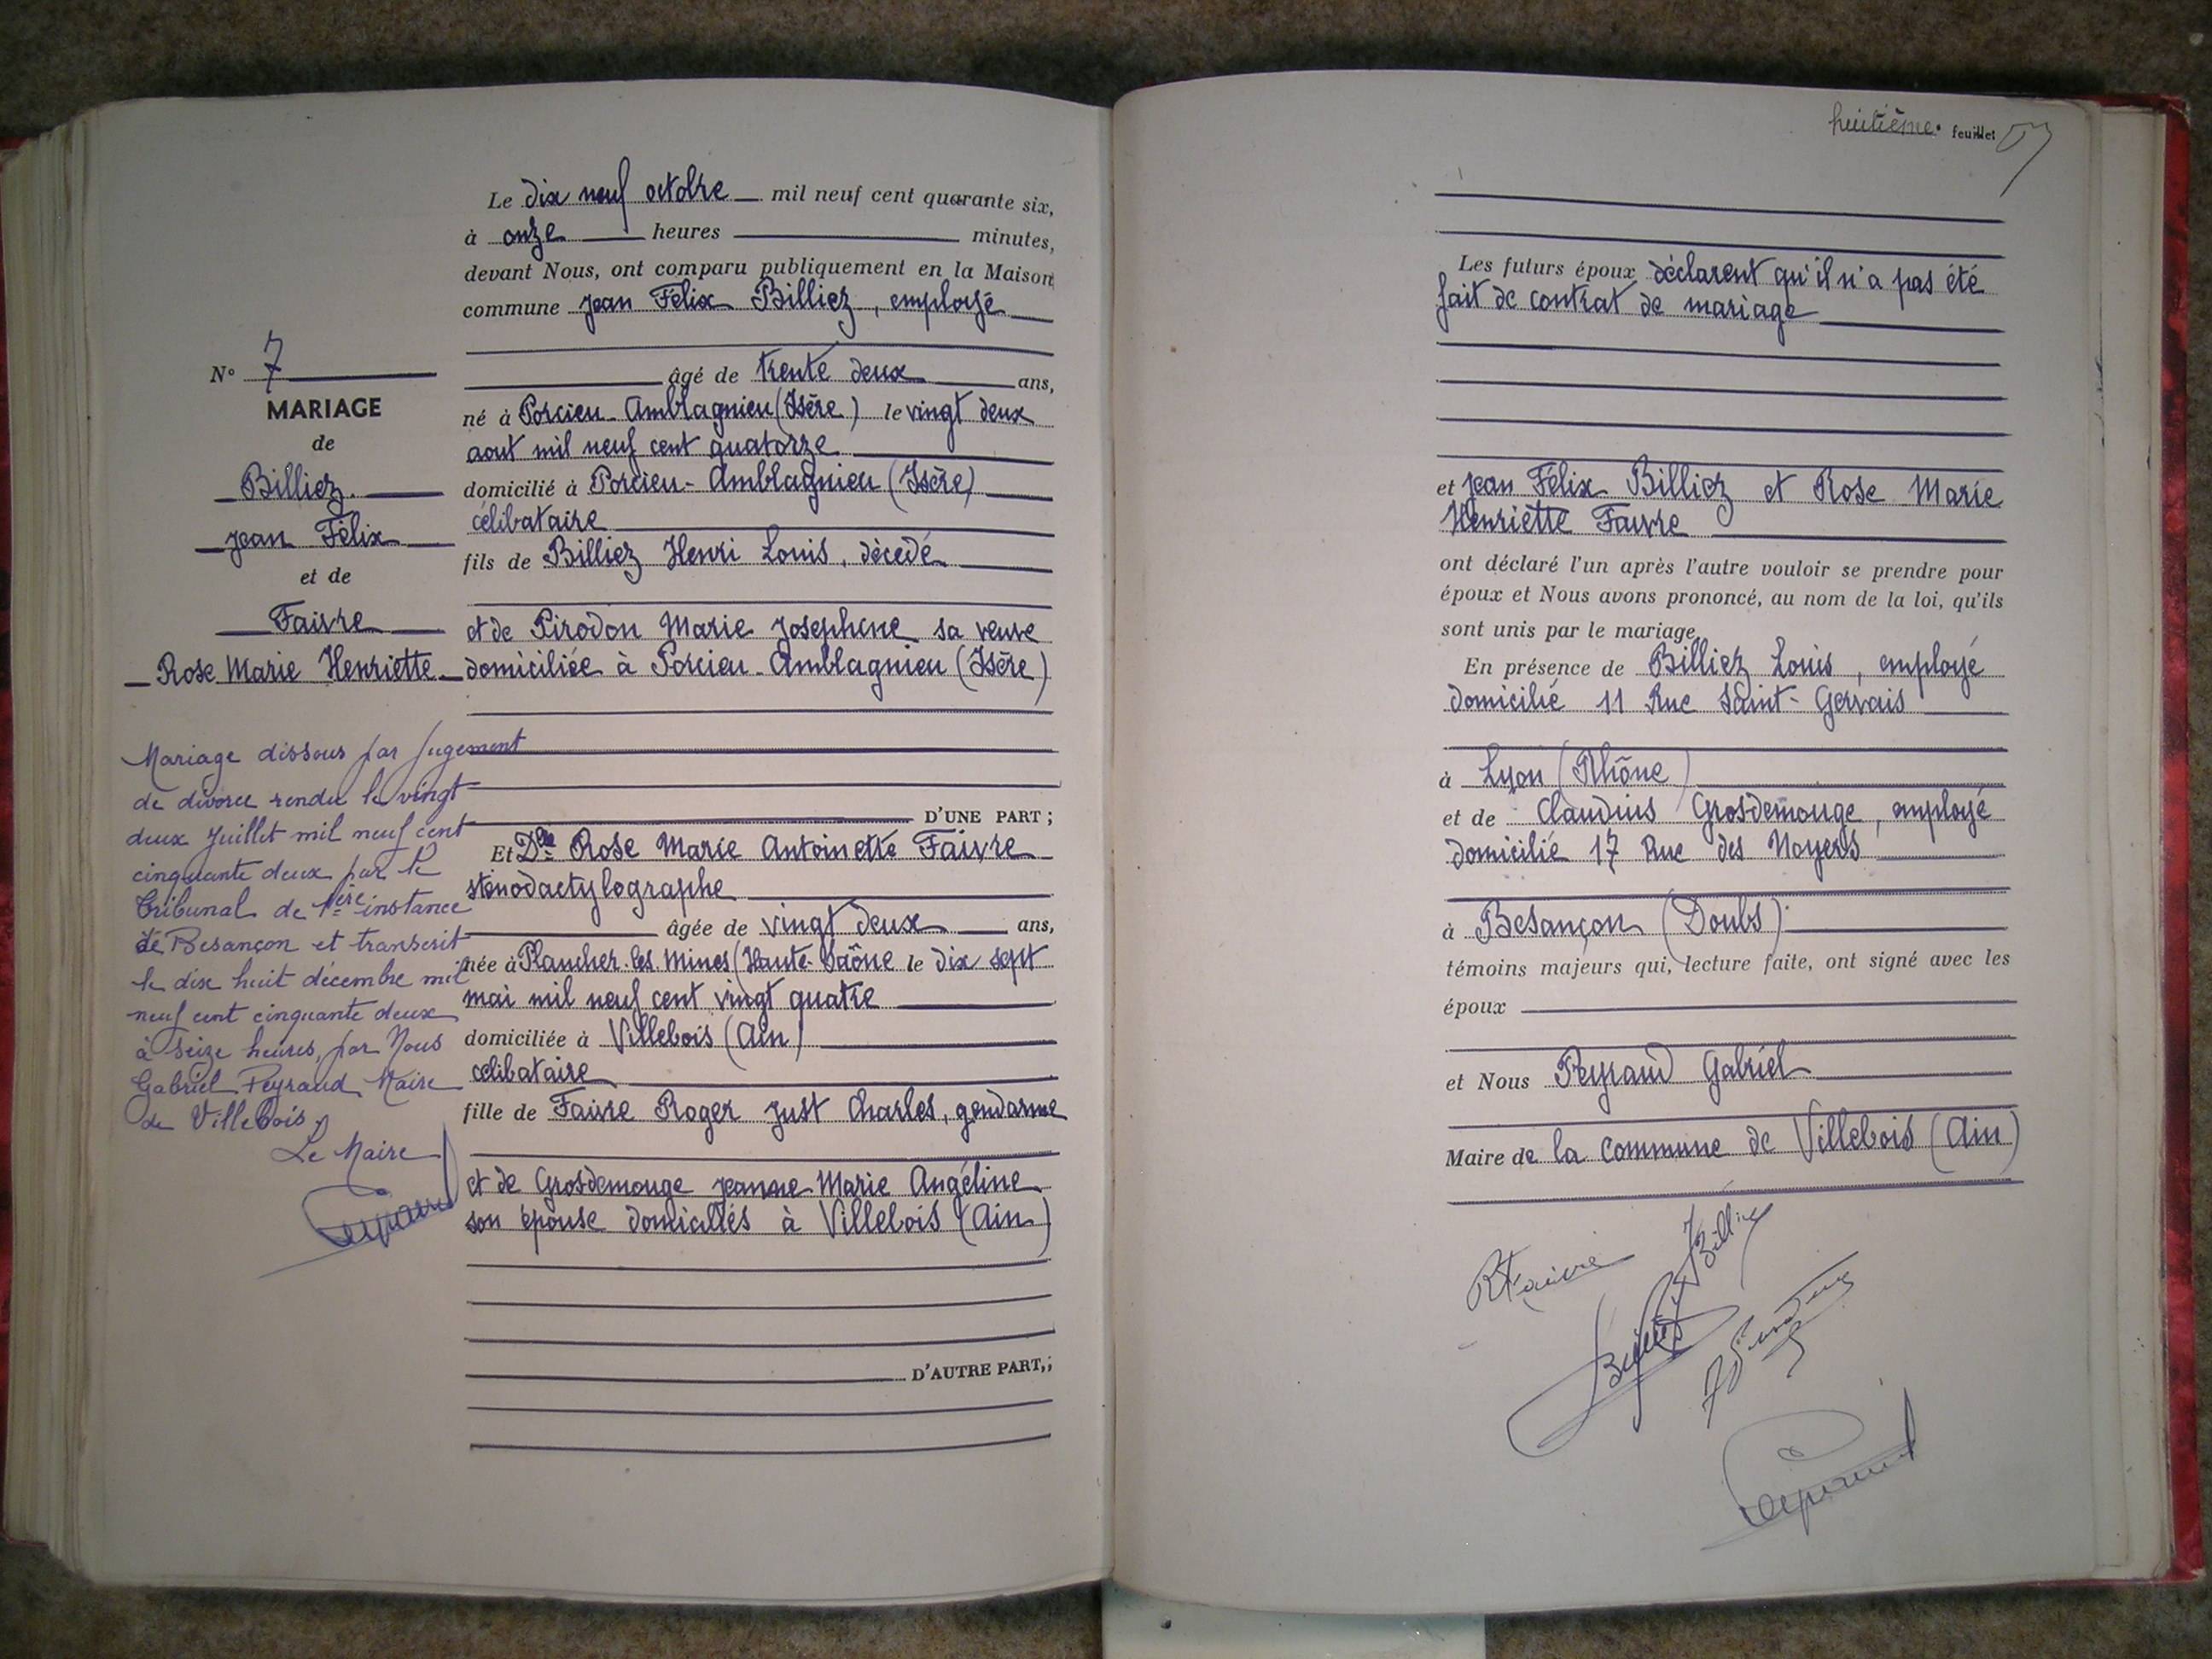 N° 7
MARIAGE
de
Billiez
Jean Félix
et de
Faivre
Rose Marie Henriette
Mariage dissous par jugement
de divorce rendu le vingt
deux Juillet mil neuf cent
cinquante deux par le
Tribunal de 1ère instance
de Besançon et transcrit
le dix huit décembre mil
neuf cent cinquante deux
à seize heures, par Nous
Gabriel Peyraud Maire
de Villebois.
Le Maire
Peyraud
Le dix neuf octobre mil neuf cent quarante six,
à onze heures minutes,
devant Nous, ont comparu publiquement en la Maison
commune Jean Félix Billiez, employé
âgé de trente deux ans,
né à Porcieu-Amblagnieu (Isère) le vingt deux
aout mil neuf cent quatorze
domicilié à Porcieu-Amblagnieu (Isère)
célibataire
fils de Billiez Henri Louis, décédé
et de Pirodon Marie Josephine sa veuve
domiciliée à Porcieu-Amblagnieu (Isère)
D'UNE PART ;
Et Dlle Rose Marie Antoinette Faivre
sténodactylographe
âgée de vingt deux ans,
née à Plancher-les-Mines (Haute-Saône le dix sept
mai mil neuf cent vingt quatre
domiciliée à Villebois (Ain)
célibataire
fille de Faivre Roger Just Charles, gendarme
et de Grosdemouge Jeanne Marie Angéline
son épouse domiciliés à Villebois (Ain)
D'AUTRE PART,;
huitième feuillet
Les futurs époux déclarent qu'il n'a pas été
fait de contrat de mariage
et Jean Félix Billiez et Rose Marie
Henriette Faivre
ont déclaré l'un après l'autre vouloir se prendre pour
époux et Nous avons prononcé, au nom de la loi, qu'ils
sont unis par le mariage.
En présence de Billiez Louis, employé
domicilié 11 Rue Saint-Gervais
à Lyon (Rhône)
et de Claudius Grosdemouge, employé
domicilié 17 Rue des Noyers
à Besançon (Doubs)
témoins majeurs qui, lecture faite, ont signé avec les
époux
et Nous Peyraud Gabriel
Maire de la commune de Villebois (Ain)
R Faivre
Billiez
Billiez
Peyraud